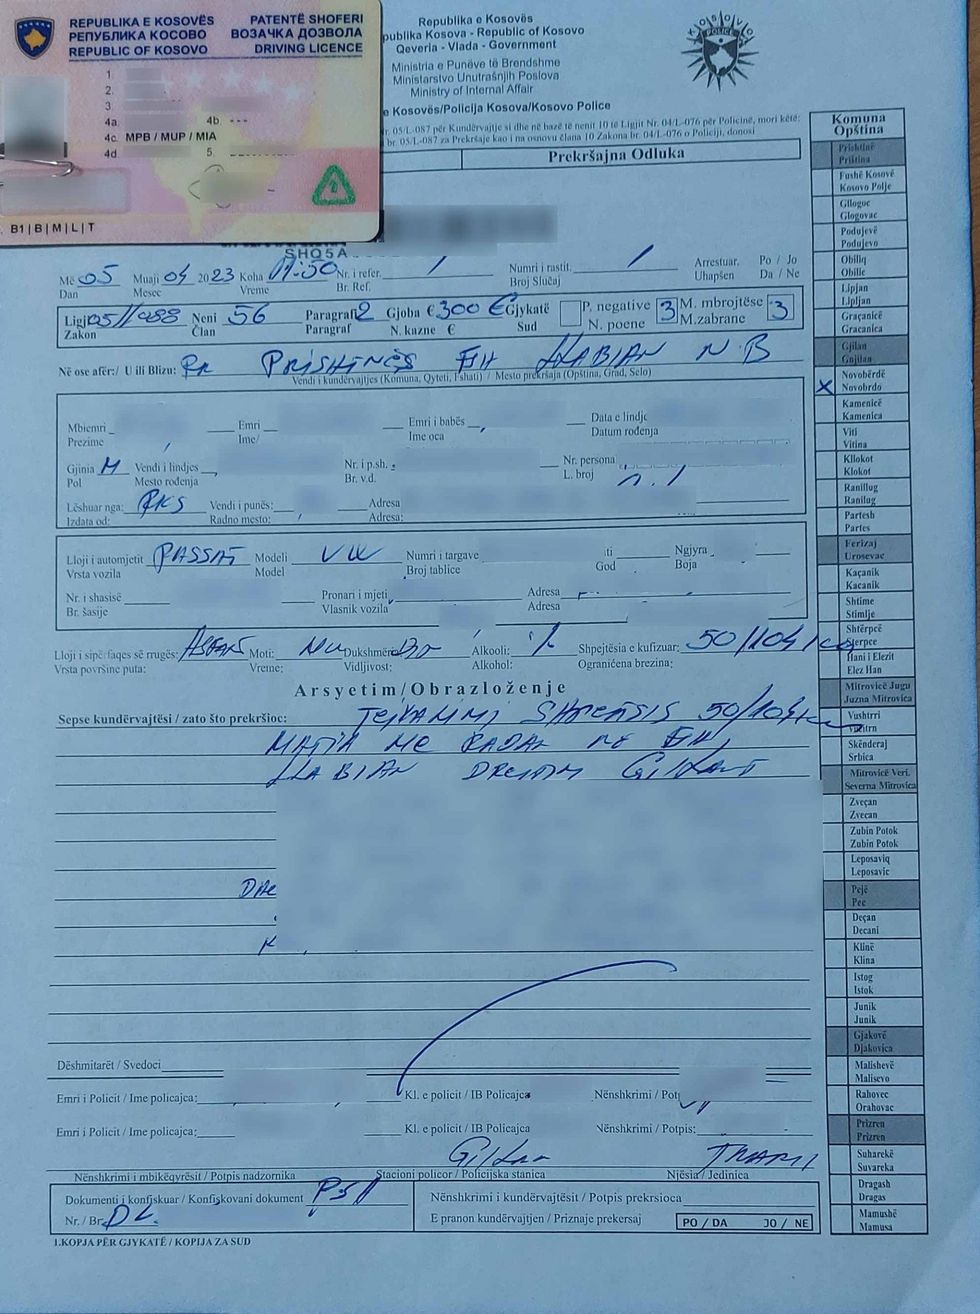 REPUBLIKA E KOSOVËS
РЕПУБЛИКА КОСОВО
REPUBLIC OF KOSOVO
PATENTË SHOFERI
ВОЗАЧКА ДОЗВОЛА
DRIVING LICENCE
1.
2.
3.
4a.
4b. ---
4c. MPB / MUP / MIA
4d
5.
B1|B|M|L|T
Republika e Kosovës
publika Kosova - Republic of Kosovo
Qeveria - Vlada - Government
Ministria e Punëve të Brendshme
Ministarstvo Unutrašnjih Poslova
Ministry of Internal Affair
e Kosovës/Policija Kosova/Kosovo Police
KOSOVO
POLICE
r. 05/L-087 për Kundërvajtje si dhe në bazë të nenit 10 të Ligjit Nr. 04/L-076 për Policinë, mori këtë:
br. 05/L-087 za Prekršaje kao i na osnovu člana 10 Zakona br. 04/L-076 o Policiji, donosi
Prekršajna Odluka
SHQ5A
Më 05 Muaji 04 2023 Koha 11:50 Nr. i refer. / Numri i rastit. / Arrestuar. Po / Jo
Dan Mesec Vreme Br. Ref. Broj Slučaj Uhapšen Da / Ne
Ligji 05/L-088 Neni 56 Paragrafi 2 Gjoba € 300 € Gjykatë P. negative 3 M. mbrojtëse 3
Zakon Član Paragraf N. kazne € Sud N. poene M.zabrane
Në ose afër:/ U ili Blizu: RR PRISHINËS FSH LLABJAN N.B
Vendi i kundërvajtjes (Komuna, Qyteti, Fshati) / Mesto prekršaja (Opština, Grad, Selo)
Mbiemri Emri Emri i babës Data e lindje
Prezime Ime/ Ime oca Datum rođenja
Gjinia M Vendi i lindjes Nr. i p.sh. Nr. persona
Pol Mesto rođenja Br. v.d. L. broj
Lëshuar nga: RKS Vendi i punës: Adresa
Izdata od: Radno mesto: Adresa:
Lloji i automjetit PASSAT Modeli VW Numri i targave Ngjyra
Vrsta vozila Model Broj tablice God Boja
Nr. i shasisë Pronari i mjeti Adresa
Br. šasije Vlasnik vozila Adresa
Lloji i sipërfaqes së rrugës: ASFALT Moti: Dukshmëria Alkooli: / Shpejtësia e kufizuar: 50/104
Vrsta površine puta: Vreme: Vidljivost: Alkohol: Ograničena brezina:
Arsyetim/Obrazloženje
Sepse kundërvajtësi / zato što prekršioc: TEJKALIMI SHPEJTSIS 50/104
MATJA ME RADAR NË FSH
LLABJAN DREJTIM GJILANIT
Dëshmitarët / Svedoci
Emri i Policit / Ime policajca: Kl. e policit / IB Policajca Nënshkrimi / Potp
Emri i Policit / Ime policajca: Kl. e policit / IB Policajca Nënshkrimi / Potpis:
Gjilan
Nënshkrimi i mbikëqyrësit / Potpis nadzornika Stacioni policor / Policijska stanica Njësia / Jedinica
Dokumenti i konfiskuar / Konfiskovani dokument PSH
Nr. / Br. DL
Nënshkrimi i kundërvajtësit / Potpis prekrsioca
E pranon kundërvajtjen / Priznaje prekersaj PO / DA JO / NE
1.KOPJA PËR GJYKATË / KOPIJA ZA SUD
Komuna
Opština
Prishtinë
Priština
Fushë Kosovë
Kosovo Polje
Gllogoc
Glogovac
Podujevë
Podujevo
Obiliq
Obilic
Lipjan
Lipljan
Graçanicë
Gracanica
Gjilan
Gnjilan
X Novobërdë
Novobrdo
Kamenicë
Kamenica
Viti
Vitina
Kllokot
Klokot
Ranillug
Ranilug
Partesh
Partes
Ferizaj
Urosevac
Kaçanik
Kacanik
Shtime
Stimlje
Shtërpcë
Hani i Elezit
Elez Han
Mitrovicë Jugu
Juzna Mitrovica
Vushtrri
Skënderaj
Srbica
Mitrovicë Veri.
Severna Mitrovica
Zveçan
Zvecan
Zubin Potok
Zubin Potok
Leposaviq
Leposavic
Pejë
Pec
Deçan
Decani
Klinë
Klina
Istog
Istok
Junik
Junik
Gjakovë
Djakovica
Malishevë
Malisevo
Rahovec
Orahovac
Prizren
Prizren
Suharekë
Suvareka
Dragash
Dragas
Mamushë
Mamusa